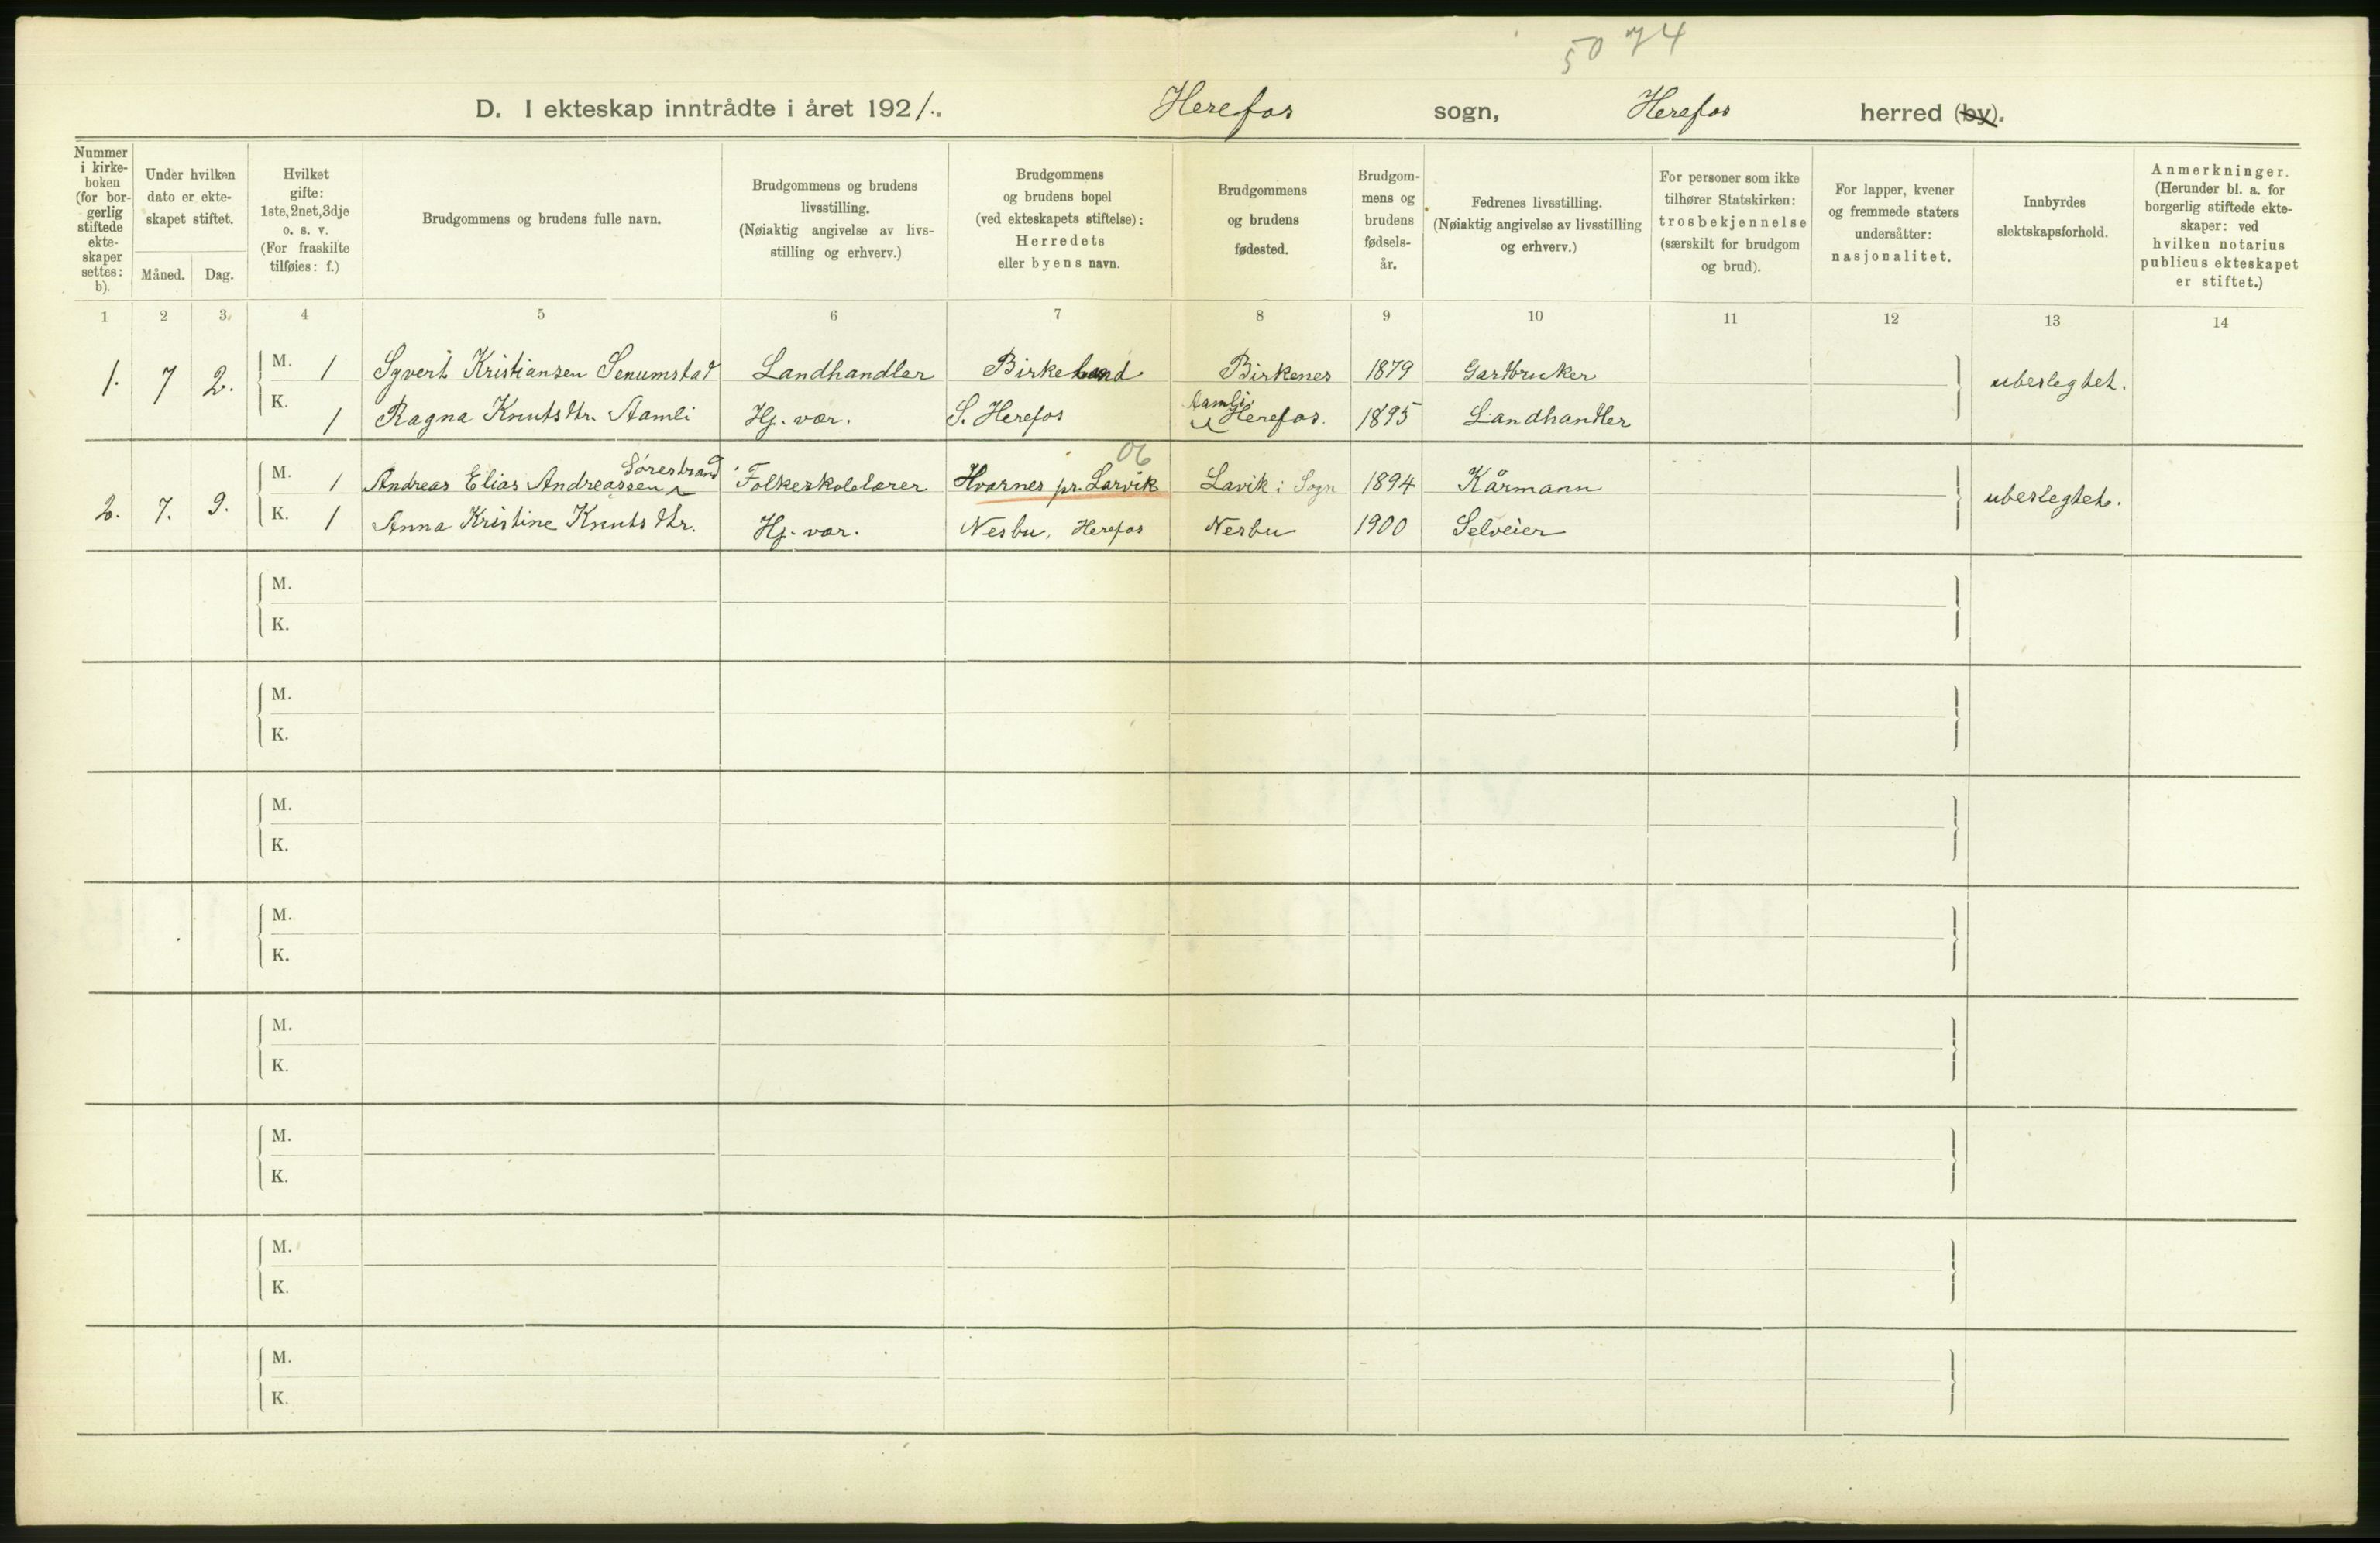 5074
D. I ekteskap inntrådte i året 1921. Herefos sogn, Herefos herred (by).
Nummer i kirke-boken (for bor-gerlig stiftede ekte-skaper settes: b).
Under hvilken dato er ekte-skapet stiftet.
Måned. Dag.
Hvilket gifte: 1ste, 2net, 3dje o. s. v. (For fraskilte tilføies: f.)
Brudgommens og brudens fulle navn.
Brudgommens og brudens livsstilling. (Nøiaktig angivelse av livs-stilling og erhverv.)
Brudgommens og brudens bopel (ved ekteskapets stiftelse): Herredets eller byens navn.
Brudgommens og brudens fødested.
Brudgom-mens og brudens fødsels-år.
Fedrenes livsstilling. (Nøiaktig angivelse av livsstilling og erhverv.)
For personer som ikke tilhører Statskirken: trosbekjennelse (særskilt for brudgom og brud).
For lapper, kvener og fremmede staters undersåtter: nasjonalitet.
Innbyrdes slektskapsforhold.
Anmerkninger. (Herunder bl. a. for borgerlig stiftede ekte-skaper: ved hvilken notarius publicus ekteskapet er stiftet.)
1 2 3 4 5 6 7 8 9 10 11 12 13 14
1. 7 2. M. 1 Syvert Kristiansen Senumstad Landhandler Birkeland Birkenes 1879 Gardbruker ubeslegtet.
K. 1 Ragna Knutsdtr. Aamli Hj. vær. S. Herefos Aamli, Herefos. 1895 Landhandler
06
2. 7. 9. M. 1 Andreas Elias Andreassen Sørestrand Folkeskolelærer Hvarnes pr. Larvik Lavik i Sogn 1894 Kårmann ubeslegtet.
K. 1 Anna Kristine Knutsdtr. Hj. vær. Nesbu, Herefos Nesbu 1900 Selveier
M.
K.
M.
K.
M.
K.
M.
K.
M.
K.
M.
K.
M.
K.
M.
K.